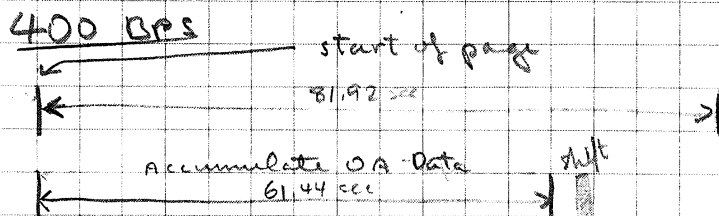 400 BPS
start of page
81.92 sec
Accumulate OA Data
shift
61.44 sec